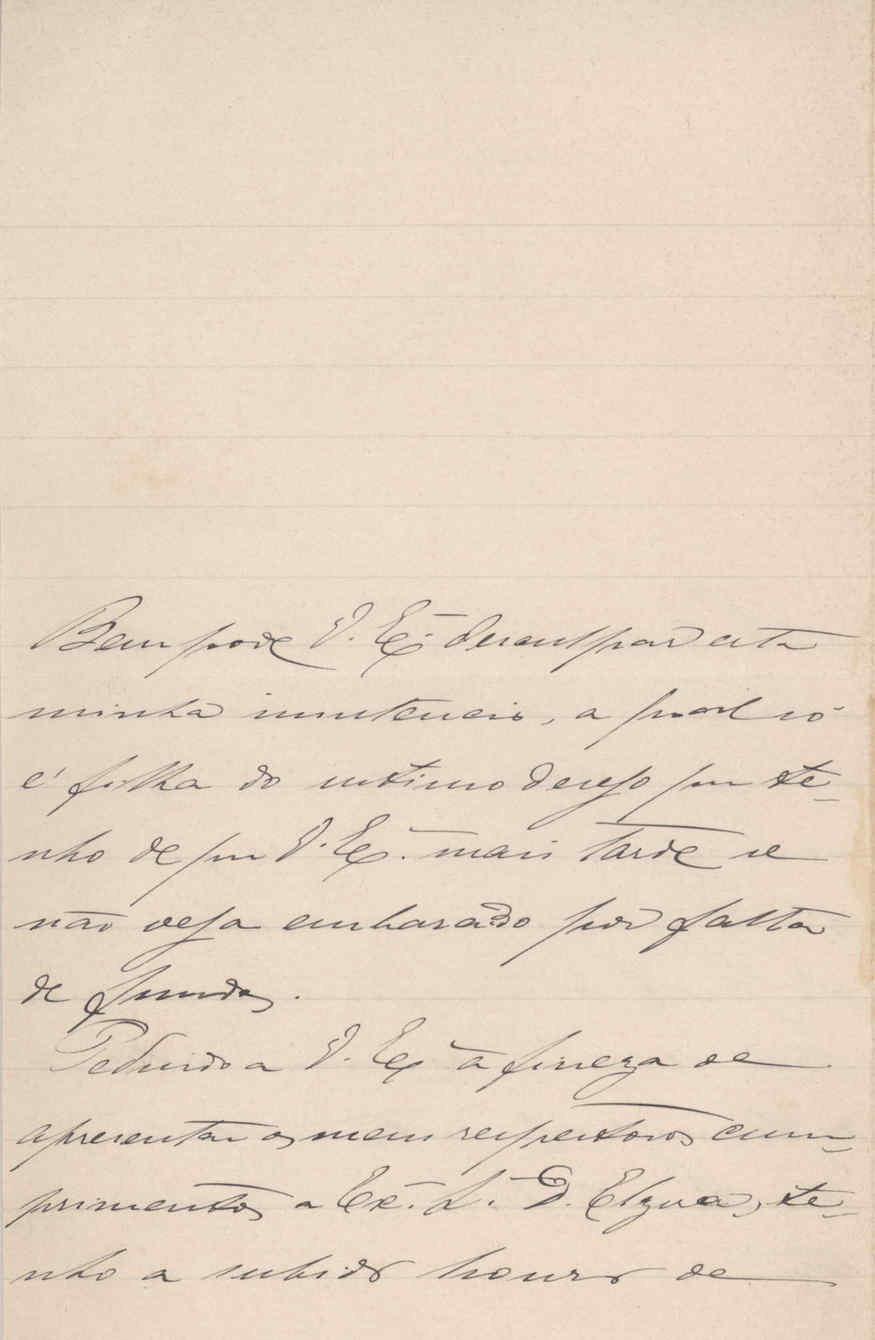 Bem pode V. Exª desculpar esta
minha insistencia, a qual só
é filha do intimo desejo que te-
nho de que V. Exª mais tarde se
não veja embaraçado por falta
de fundos.
Pedindo a V. Exª a fineza de
apresentar os meus respeitosos cum-
primentos a Exª. S.ª D. te-
nho a subida honra de